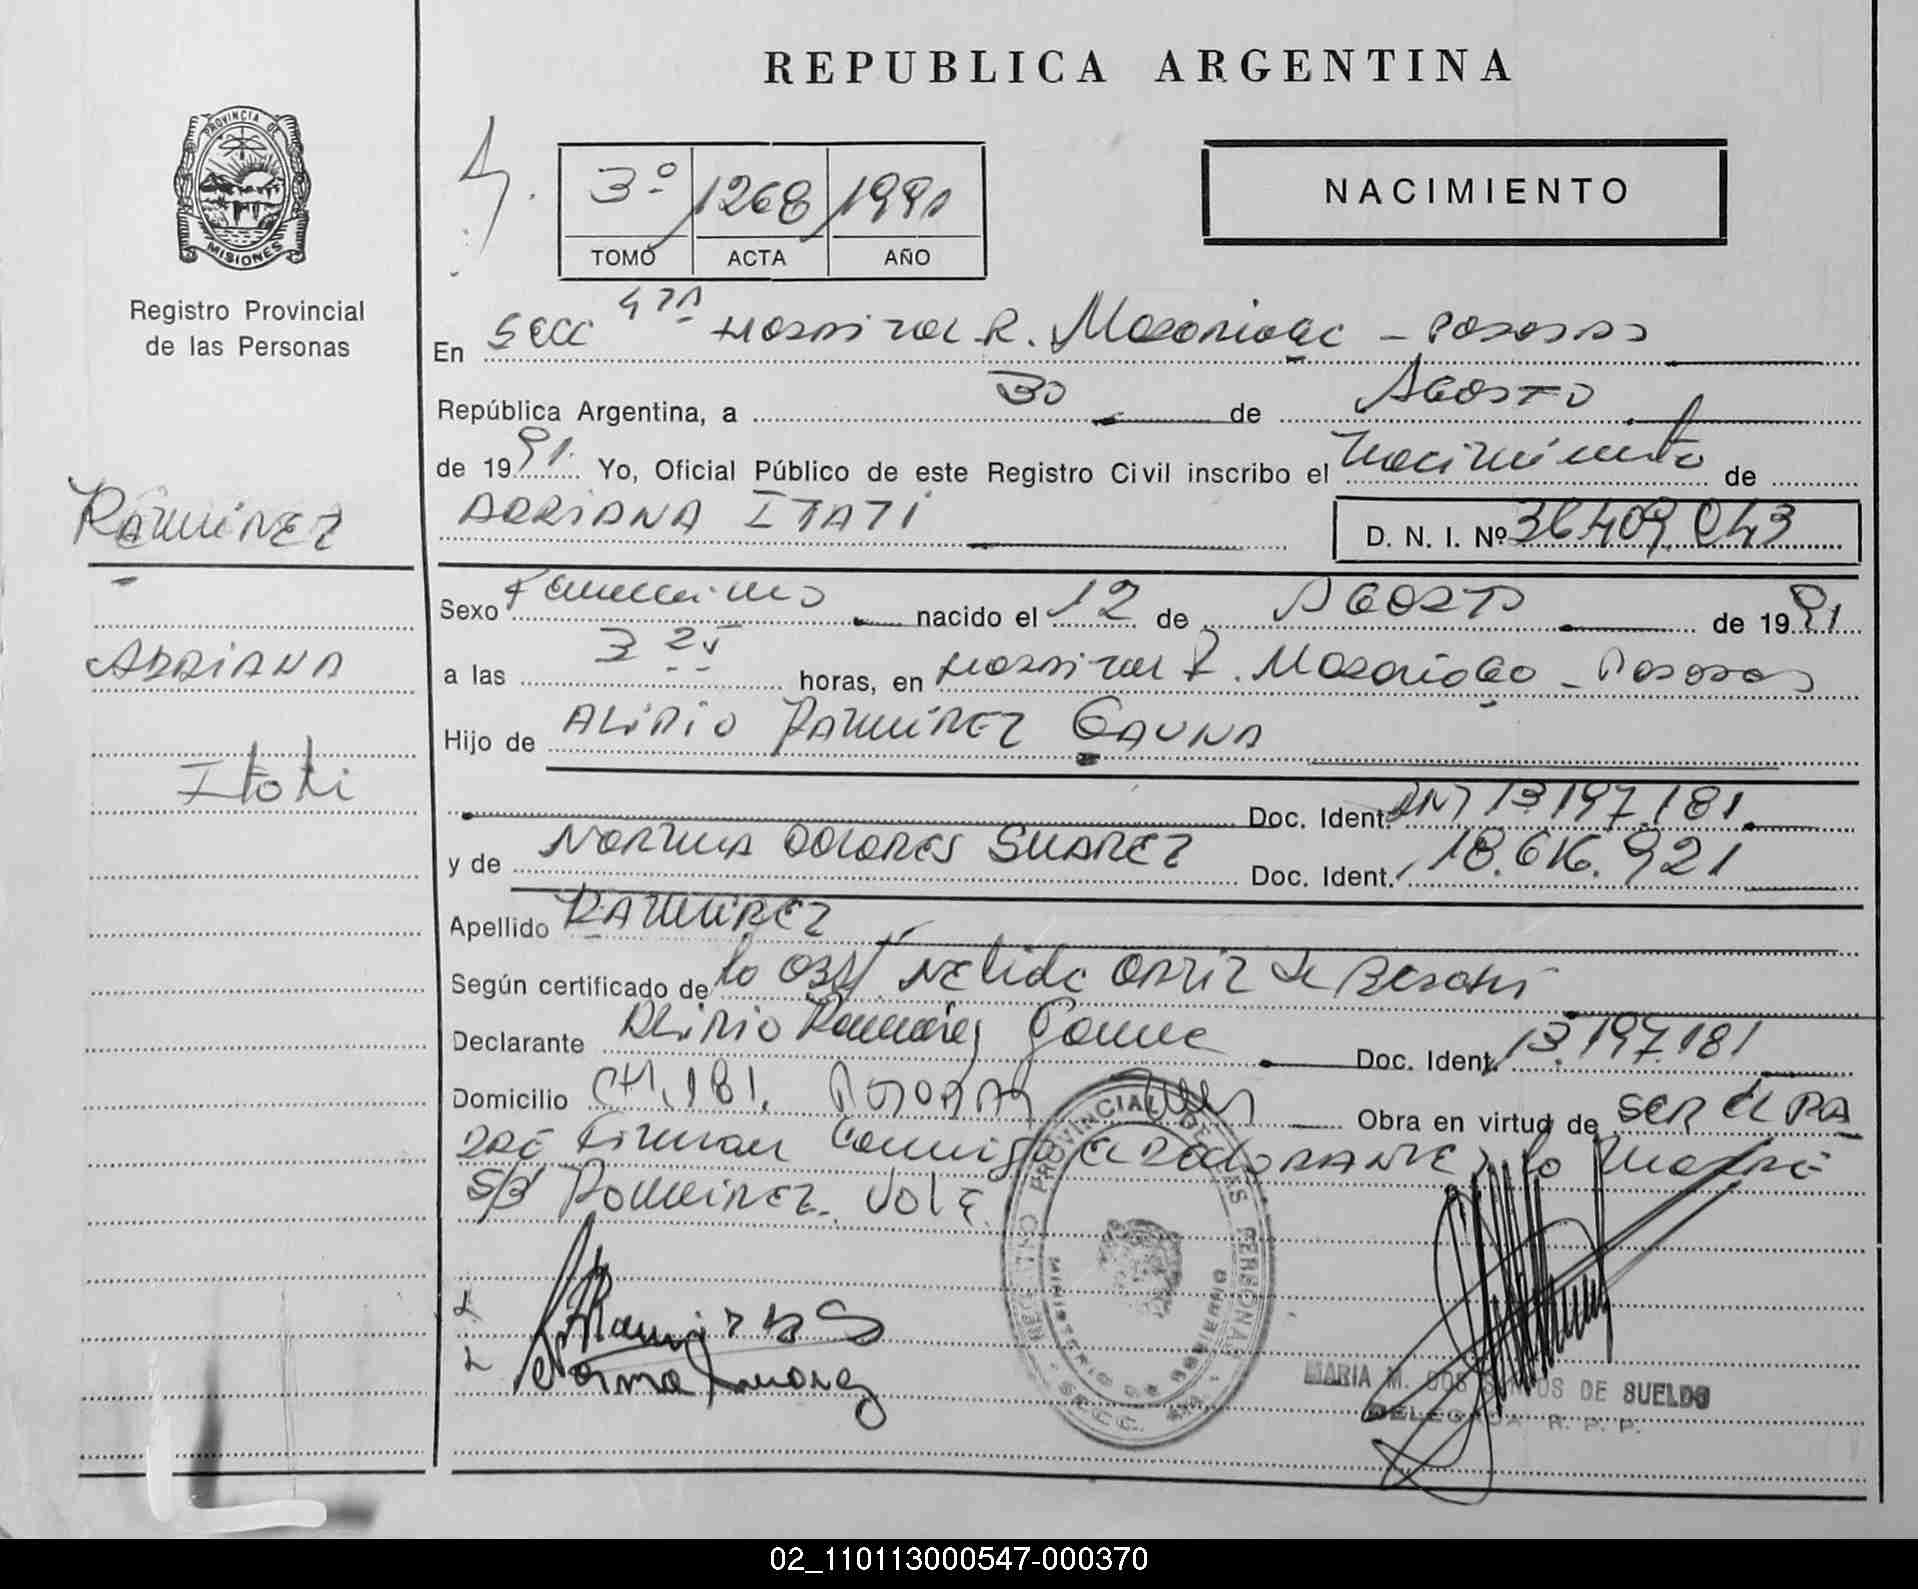 REPUBLICA ARGENTINA
PROVINCIA DE
MISIONES
Registro Provincial
de las Personas
3º 1268 1991
TOMO ACTA AÑO
NACIMIENTO
En Secc 4ta Hospital R. Madariaga - Posadas
República Argentina, a 30 de Agosto
de 1991. Yo, Oficial Público de este Registro Civil inscribo el Nacimiento de
ADRIANA ITATI
D. N. I. Nº 36.409.043
Ramirez
Adriana
Itati
Sexo Femenino nacido el 12 de Agosto de 1991
a las 3 25 horas, en Hospital R. Madariaga - Posadas
Hijo de ALIRIO RAMIREZ GAUNA
Doc. Ident. DNI 13.197.181.
y de NORMA DOLORES SUAREZ Doc. Ident. 18.616.921
Apellido RAMIREZ
Según certificado de la Obst. Nelida Ortiz de
Declarante Alirio Ramirez Gauna Doc. Ident. 13.197.181
Domicilio CH. 181. Posadas Obra en virtud de ser el pa
dre Firman Conmigo el declarante y la madre
S/B Ramirez. Vale.
Ramirez G
Norma Suarez
REGISTRO PROVINCIAL DE LAS PERSONAS
MINISTERIO DE GOBIERNO
SECC.
MARIA M. DOS SANTOS DE SUELDO
DELEGADA R. P. P.
02_110113000547-000370